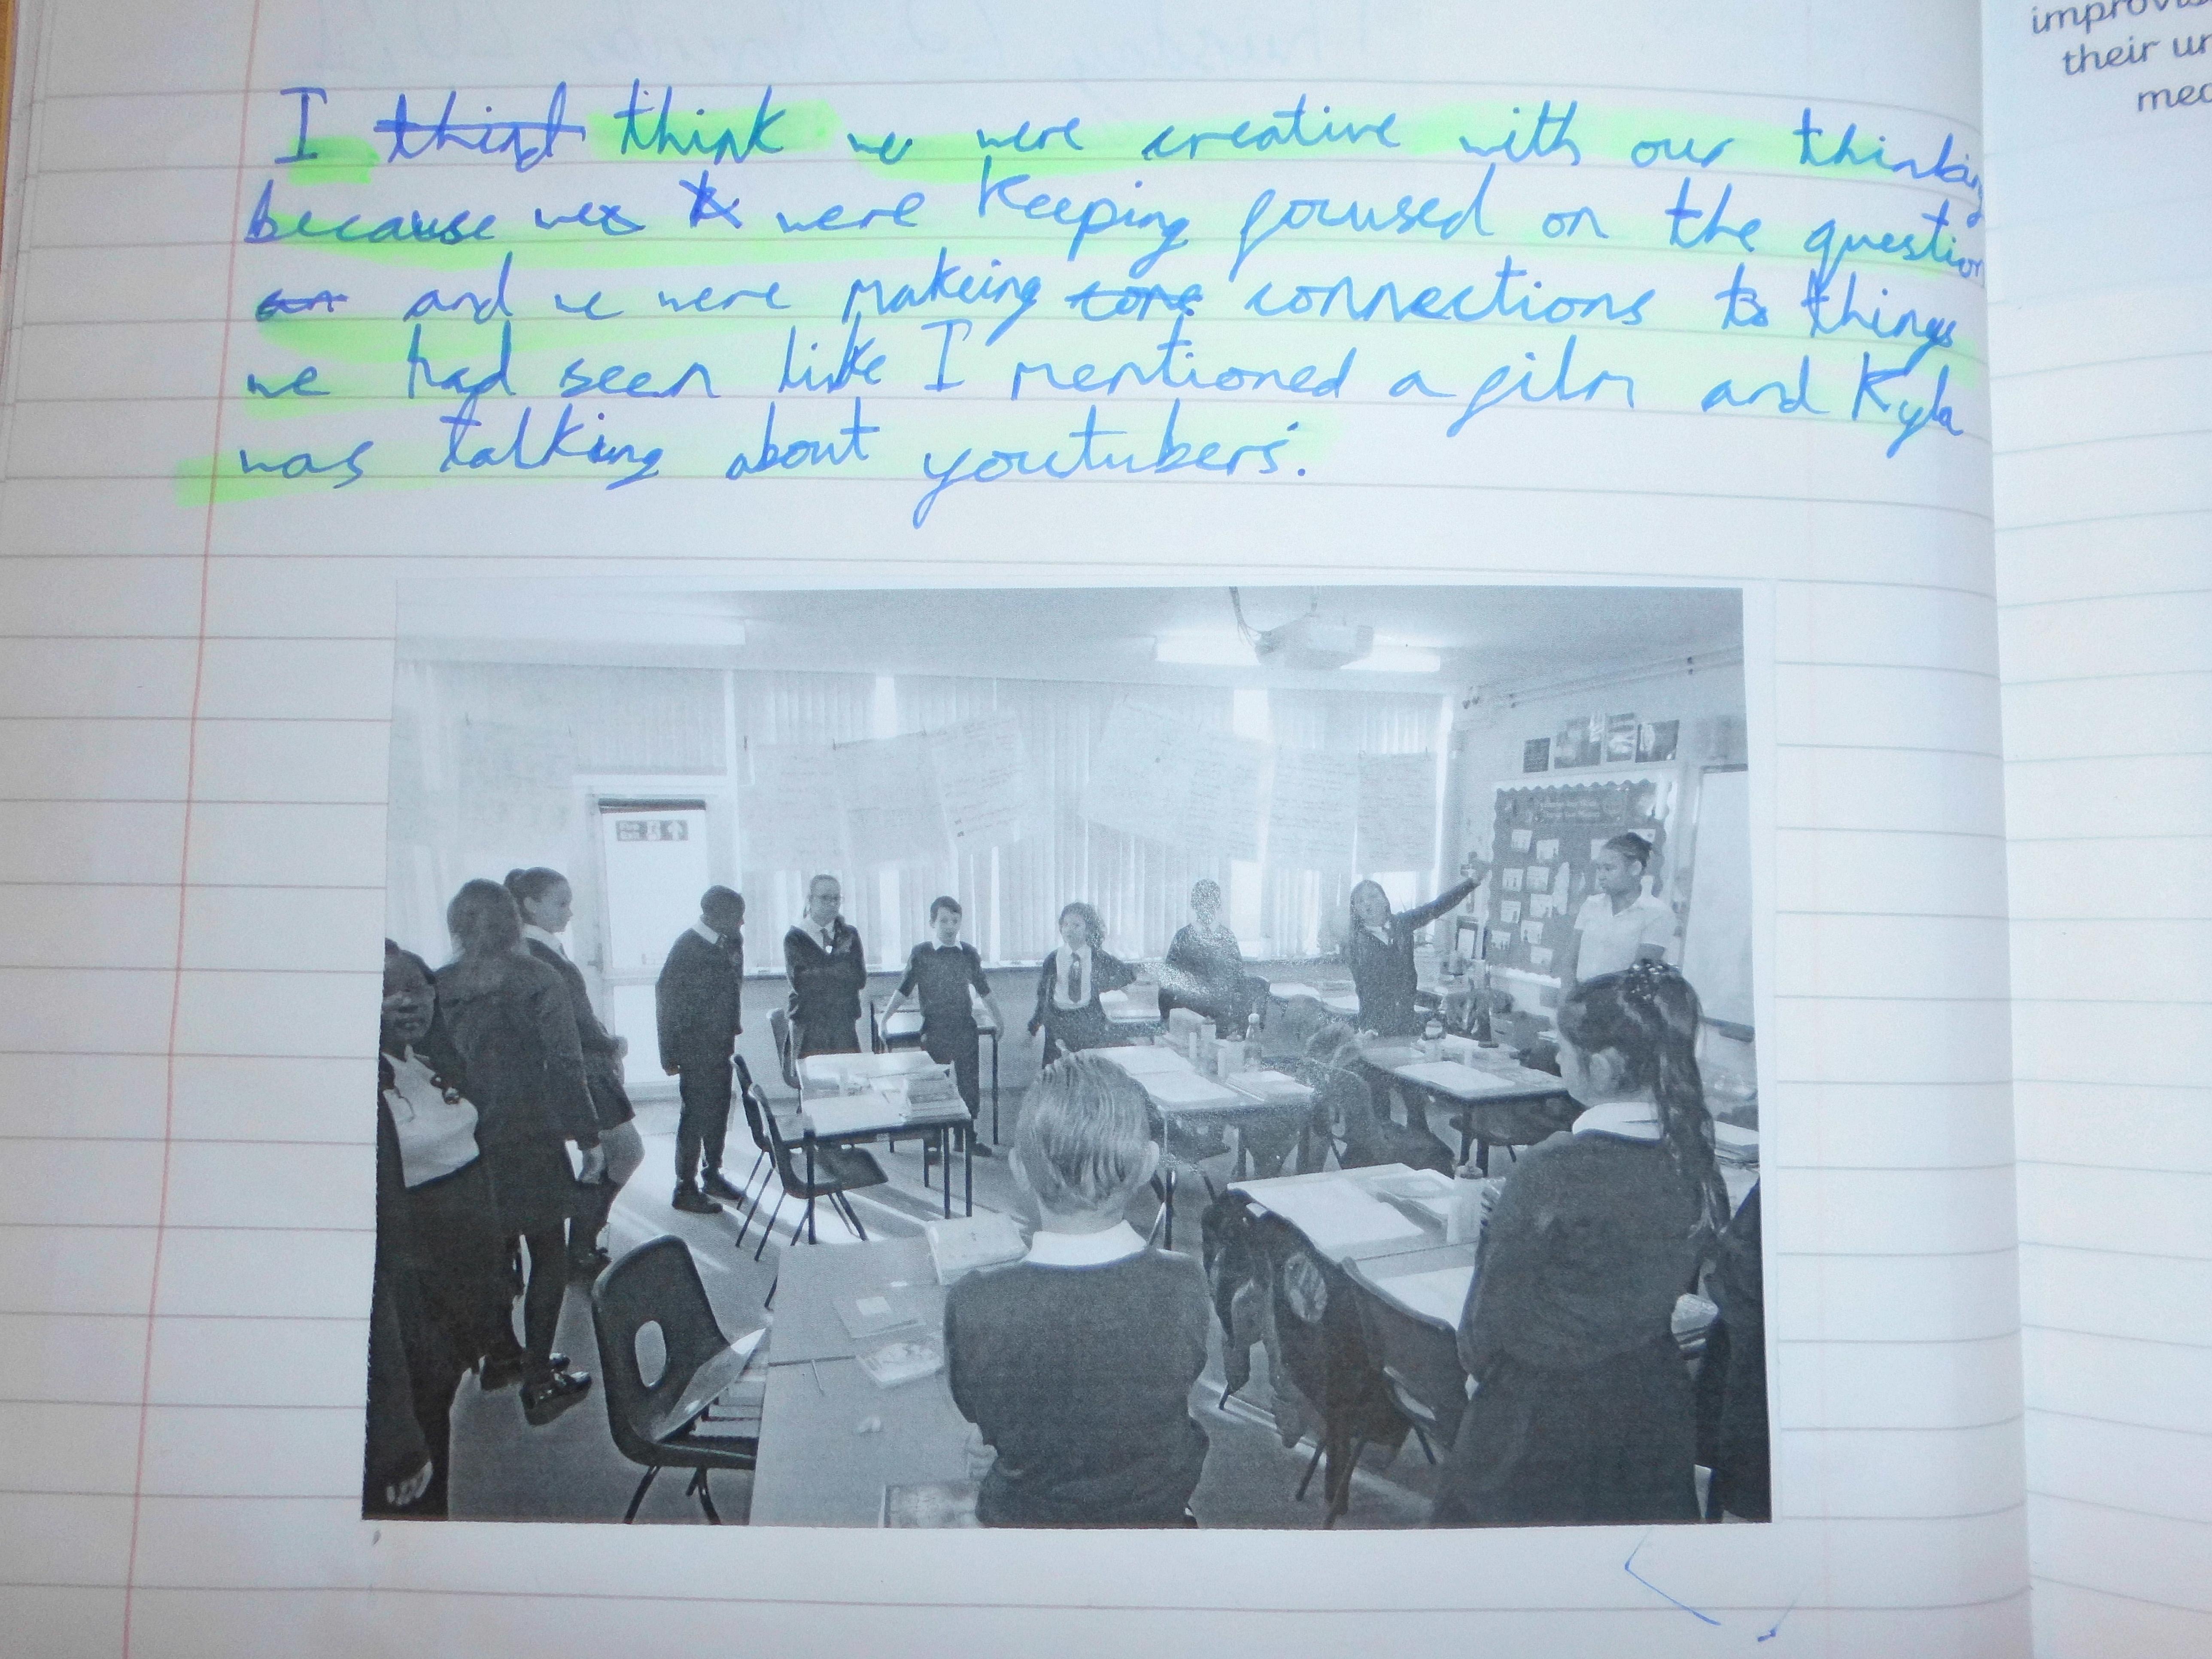 I think we were creative with our thinking
because we were keeping focused on the question
and we were makeing connections to things
we had seen like I mentioned a film and Kyla
was talking about youtubers.
their